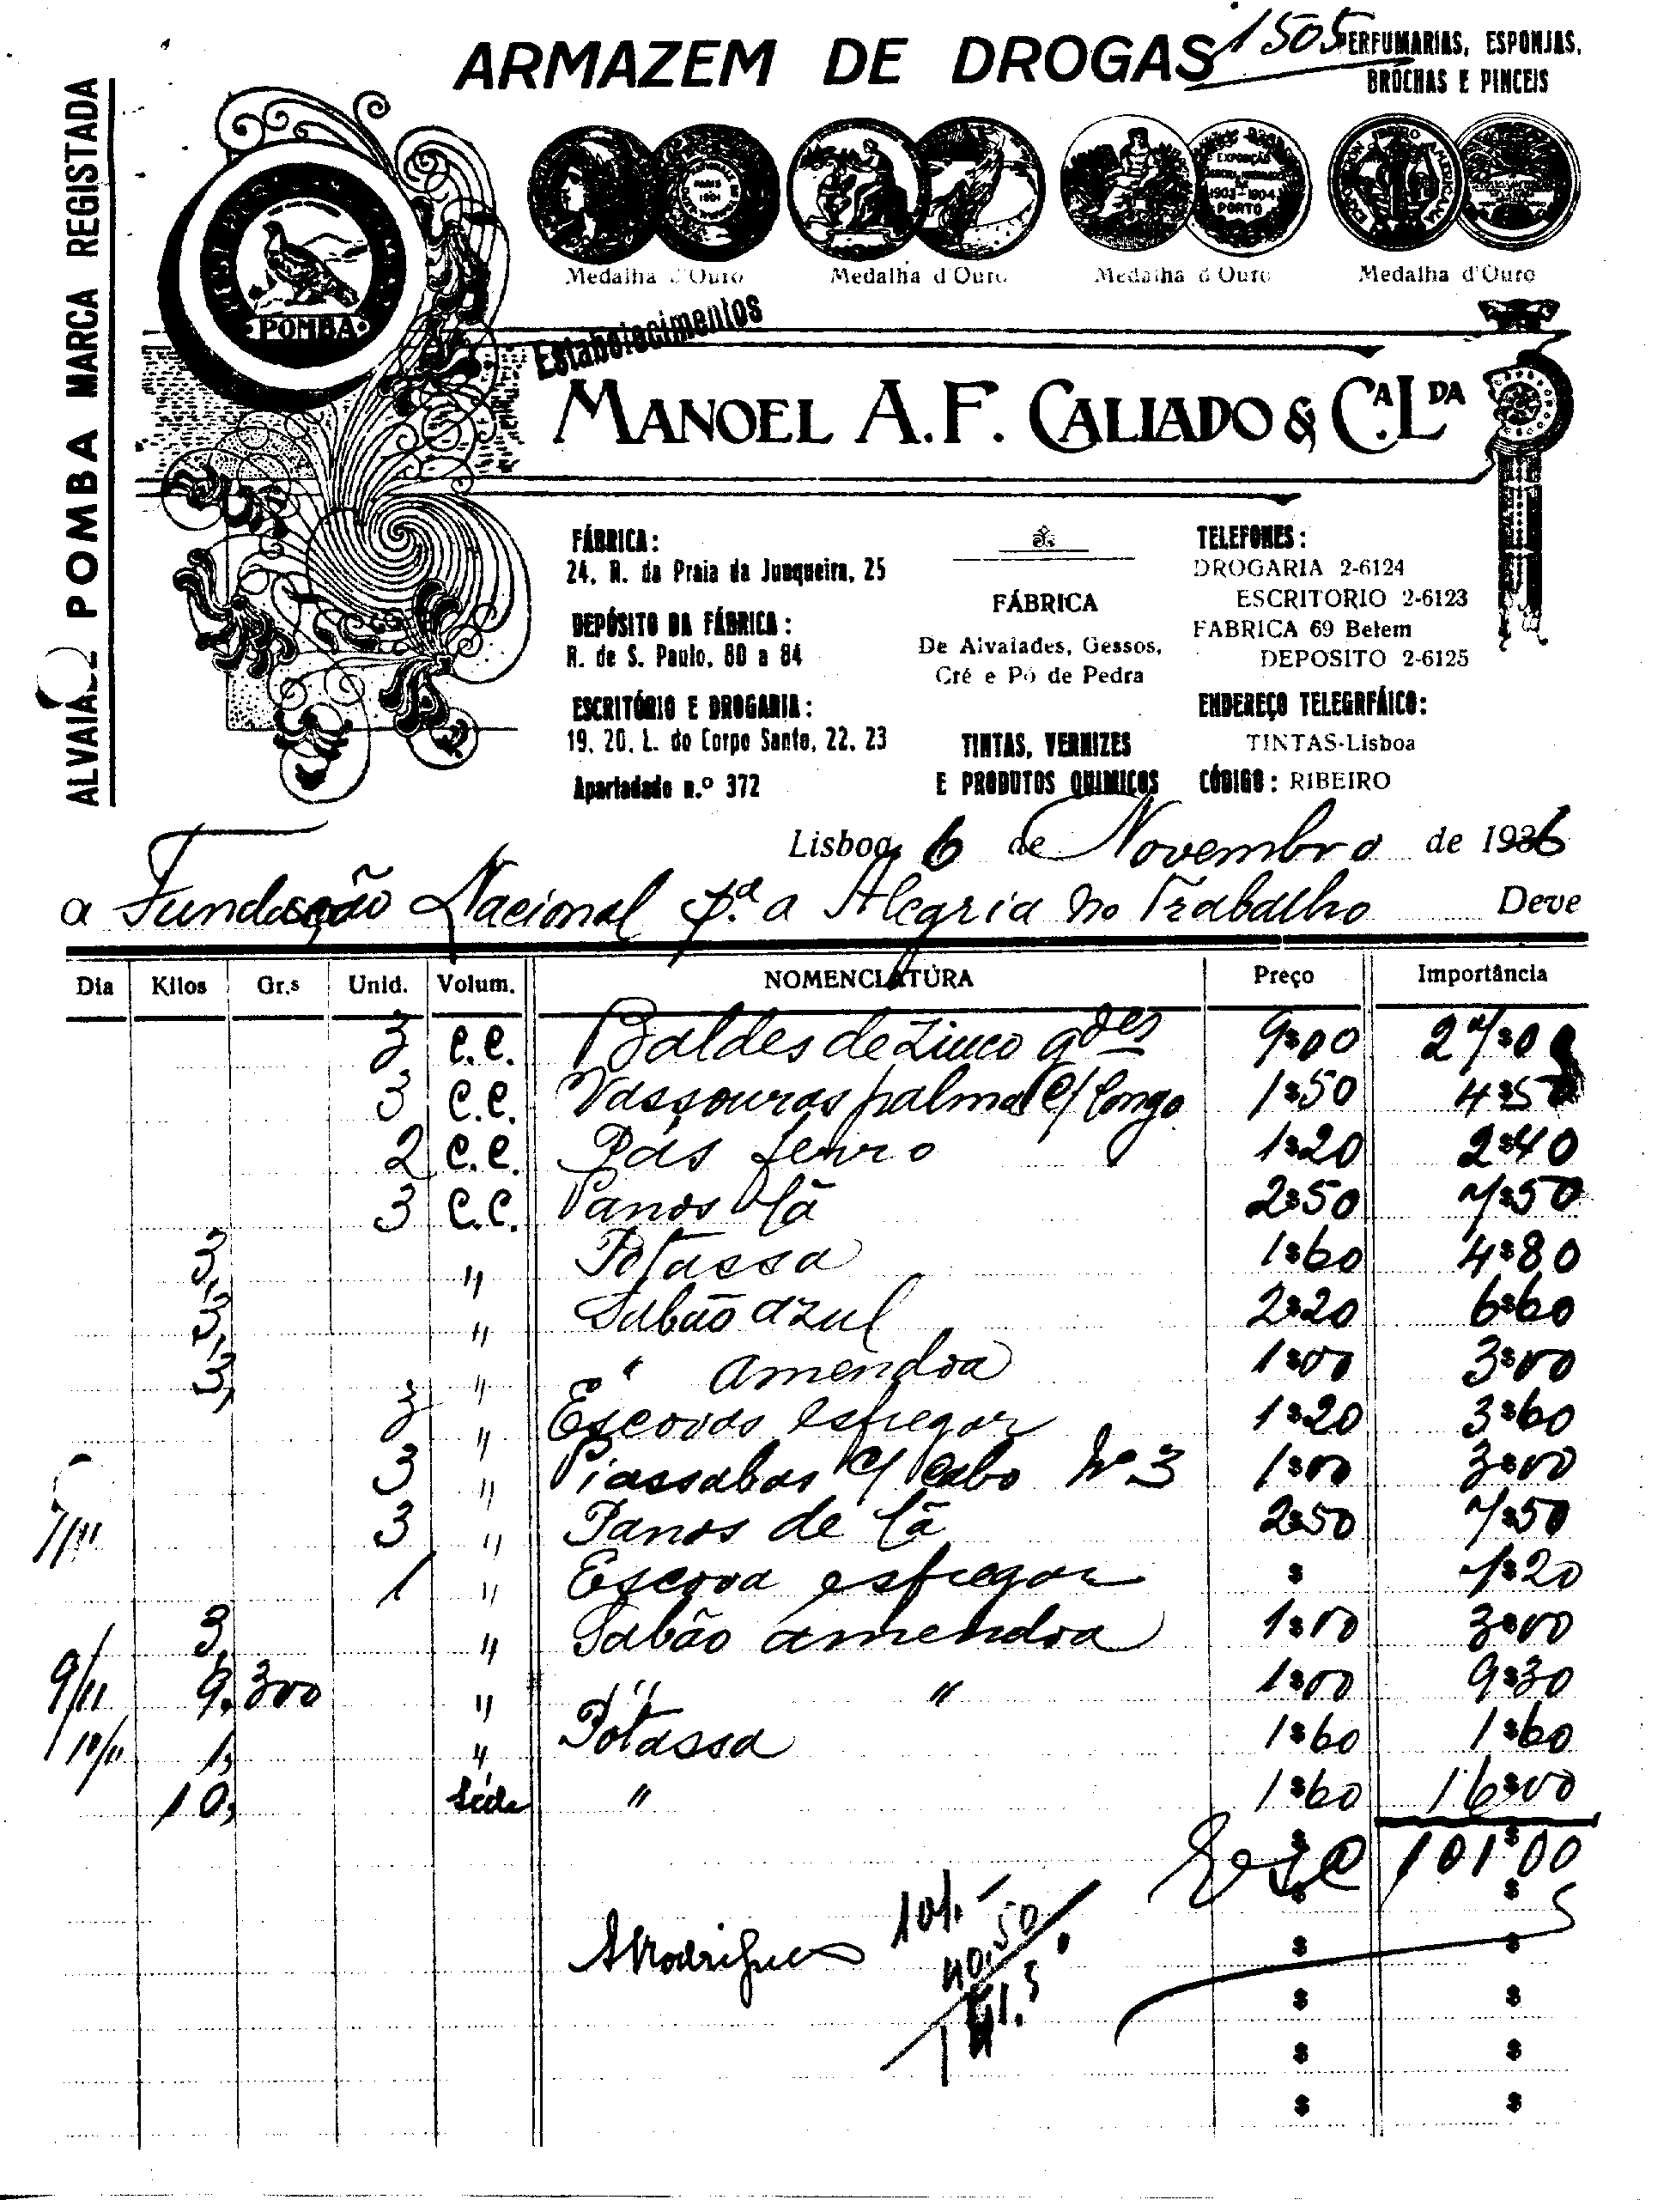 ARMAZEM DE DROGAS
1505
PERFUMARIAS, ESPONJAS,
BROCHAS E PINCEIS
ALVAIADE POMBA MARCA REGISTADA
POMBA
PARIS
1904
EXPOSIÇÃO
1903-1904
PORTO
Medalha d'Ouro
Medalha d'Ouro
Medalha d'Ouro
Medalha d'Ouro
Estabelecimentos
MANOEL A. F. CALIADO & C.A L.DA
FÁBRICA:
24, R. da Praia da Junqueira, 25
DEPÓSITO DA FÁBRICA:
R. de S. Paulo, 80 a 84
ESCRITÓRIO E DROGARIA:
19, 20, L. do Corpo Santo, 22, 23
Apartadado n.º 372
FÁBRICA
De Alvaiades, Gessos,
Cré e Pó de Pedra
TINTAS, VERNIZES
E PRODUTOS QUIMICOS
TELEFONES:
DROGARIA 2-6124
ESCRITORIO 2-6123
FABRICA 69 Belem
DEPOSITO 2-6125
ENDEREÇO TELEGRFÁICO:
TINTAS-Lisboa
CÓDIGO: RIBEIRO
Lisboa, 6 de Novembro de 1936
a Fundação Nacional p.ª a Alegria no Trabalho Deve
Dia Kilos Gr.s Unid. Volum. NOMENCLATURA Preço Importância
3 c.c. Baldes de Zinco gdes 9$00 27$00
3 c.c. Vassouras palma c/ longo 1$50 4$50
2 c.c. Pás ferro 1$20 2$40
3 c.c. Panos lã 2$50 7$50
3, " Potassa 1$60 4$80
3, " Sabão azul 2$20 6$60
3, " " amendoa 1$00 3$00
3 " Escovas esfregar 1$20 3$60
3 " Piassabas c/ cabo Nº 3 1$00 3$00
7/11 3 " Panos de lã 2$50 7$50
1 " Escova esfregar $ 1$20
3, " Sabão amendoa 1$00 3$00
9/11 9. 300 " " " 1$00 9$30
10/11 1, " Potassa 1$60 1$60
10, " 1$60 16$00
101$00
10%
10.50
ARodrigues